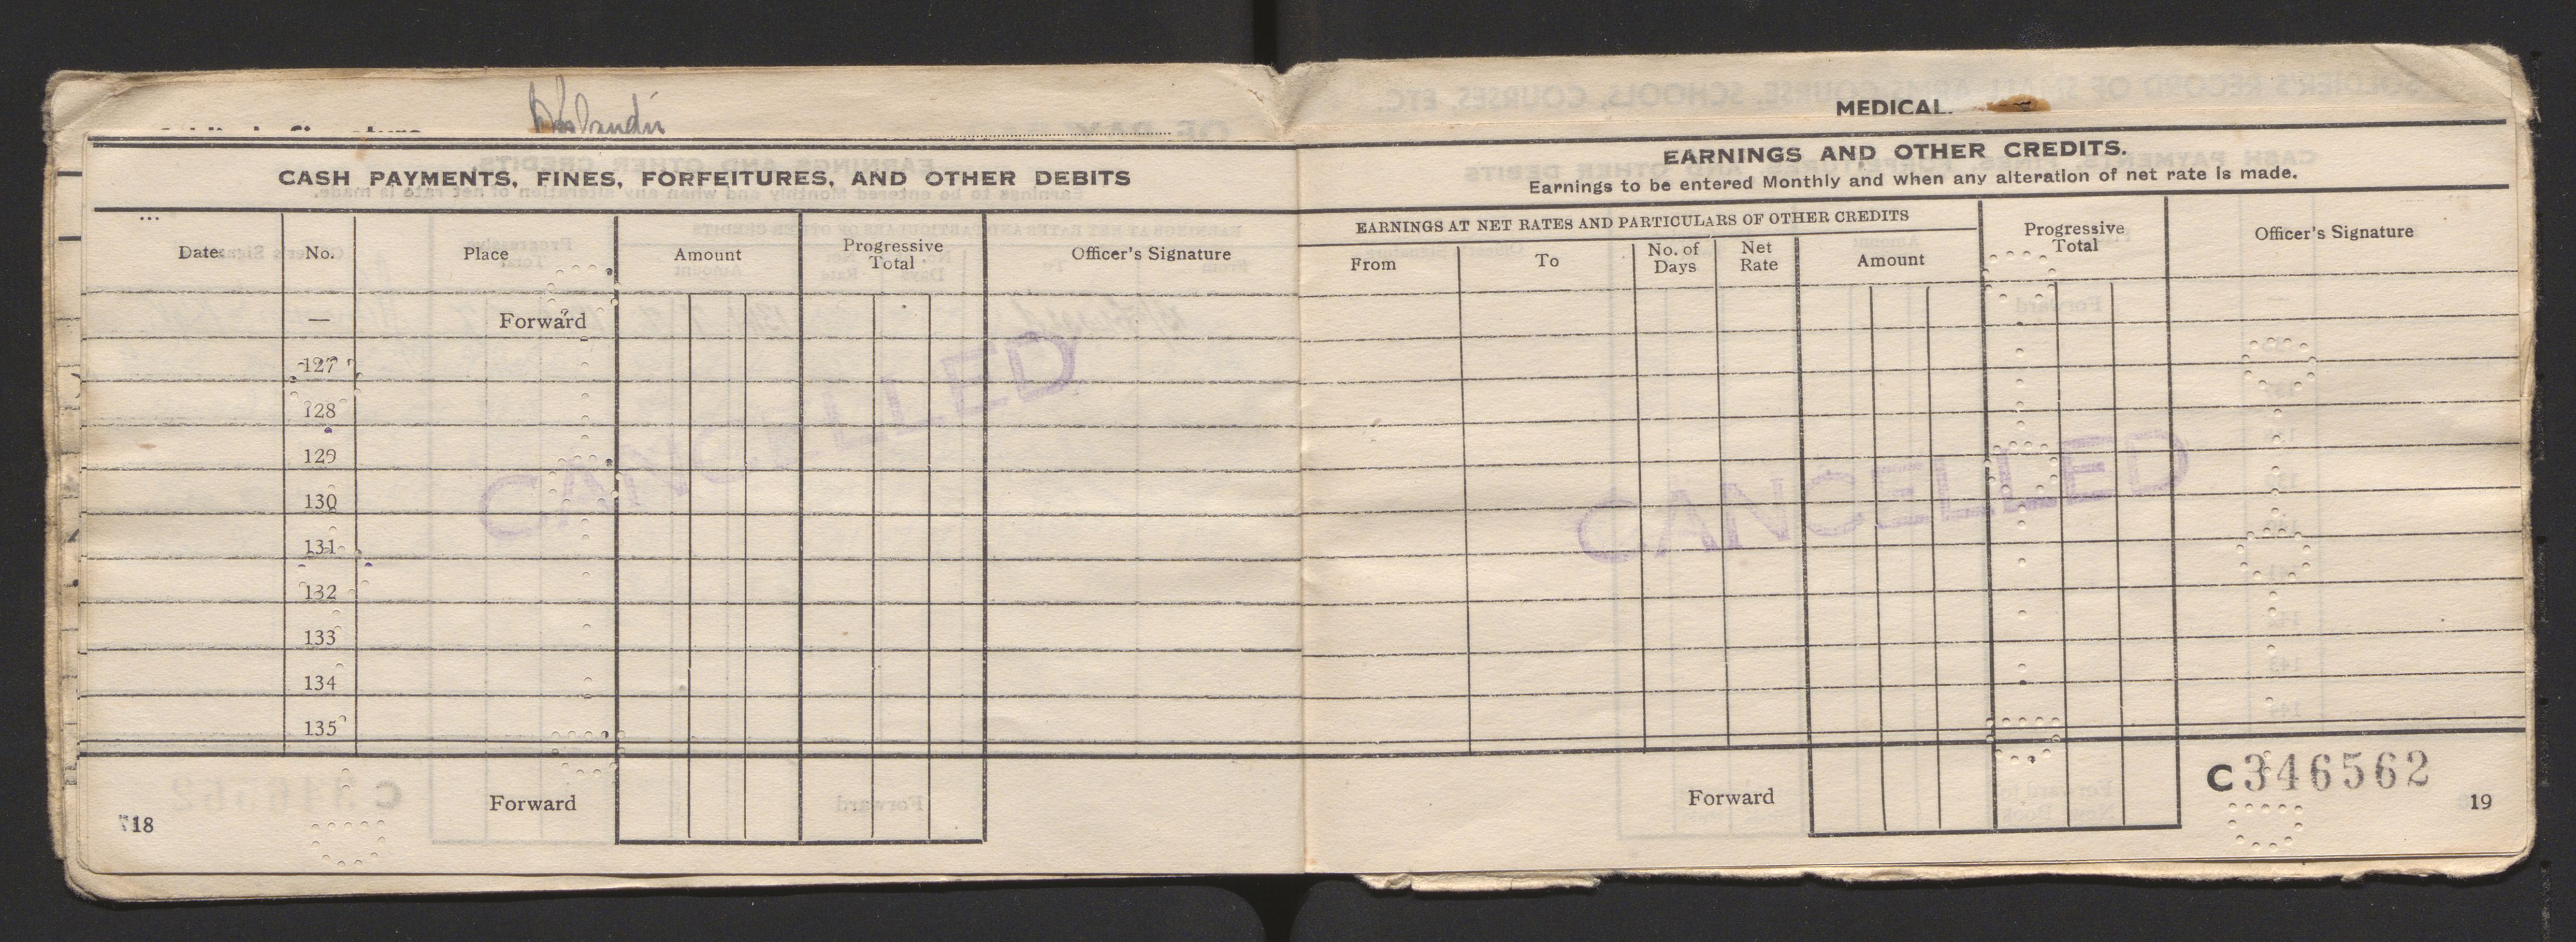 MEDICAL.
CASH PAYMENTS, FINES, FORFEITURES, AND OTHER DEBITS
Date No. Place Amount Progressive Total Officer's Signature
— Forward
127
128
129
130
131
132
133
134
135
Forward
18
CANCELLED
EARNINGS AND OTHER CREDITS.
Earnings to be entered Monthly and when any alteration of net rate is made.
EARNINGS AT NET RATES AND PARTICULARS OF OTHER CREDITS
From To No. of Days Net Rate Amount Progressive Total Officer's Signature
CANCELLED
Forward
C346562
19